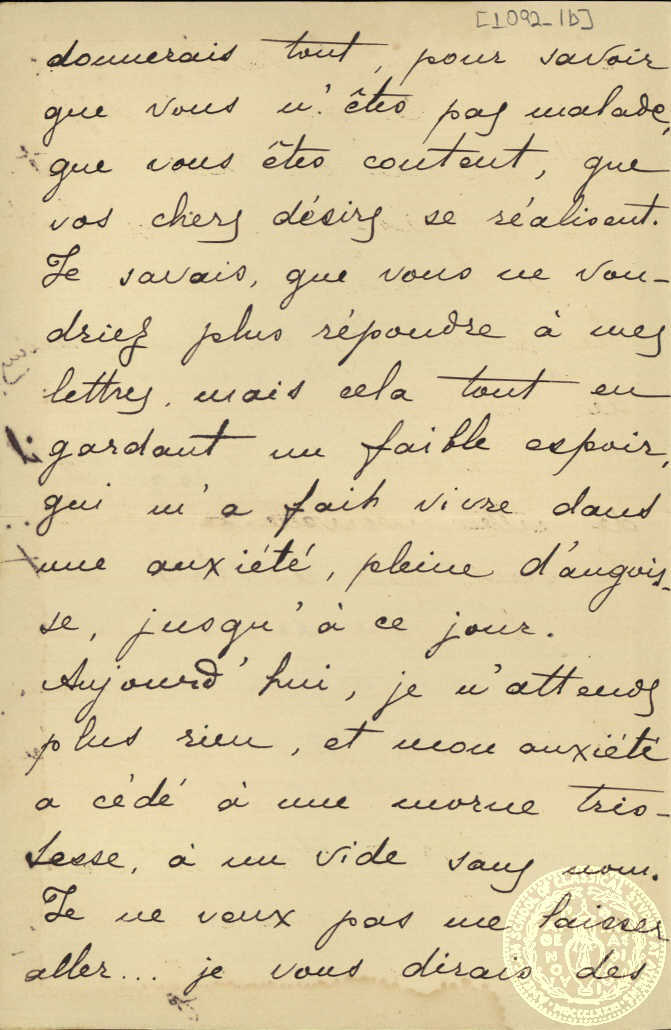 [1092-1b]
donnerais tout, pour savoir
que vous n'êtes pas malade,
que vous êtes content, que
vos chers désirs se réalisent.
Je savais, que vous ne vou-
driez plus répondre à mes
lettres, mais cela tout en
gardant un faible espoir,
qui m'a fait vivre dans
une anxiété, pleine d'angois-
se, jusqu'à ce jour.
Aujourd'hui, je n'attends
plus rien, et mon anxiété
a cédé à une morne tris-
tesse, à un vide sans nom.
Je ne veux pas me laisser
aller... je vous dirais des